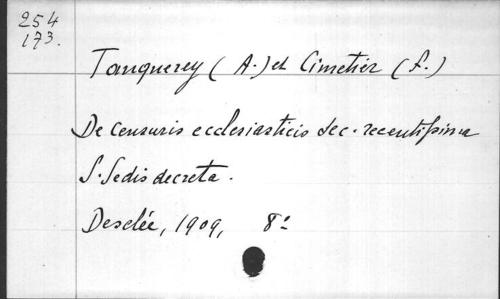 254
173.
Tanquerey (A.) et Cimetier (F.)
De Censuris ecclesiasticis sec. recentissima
S. Sedis decreta.
Desclée, 1909, 8°